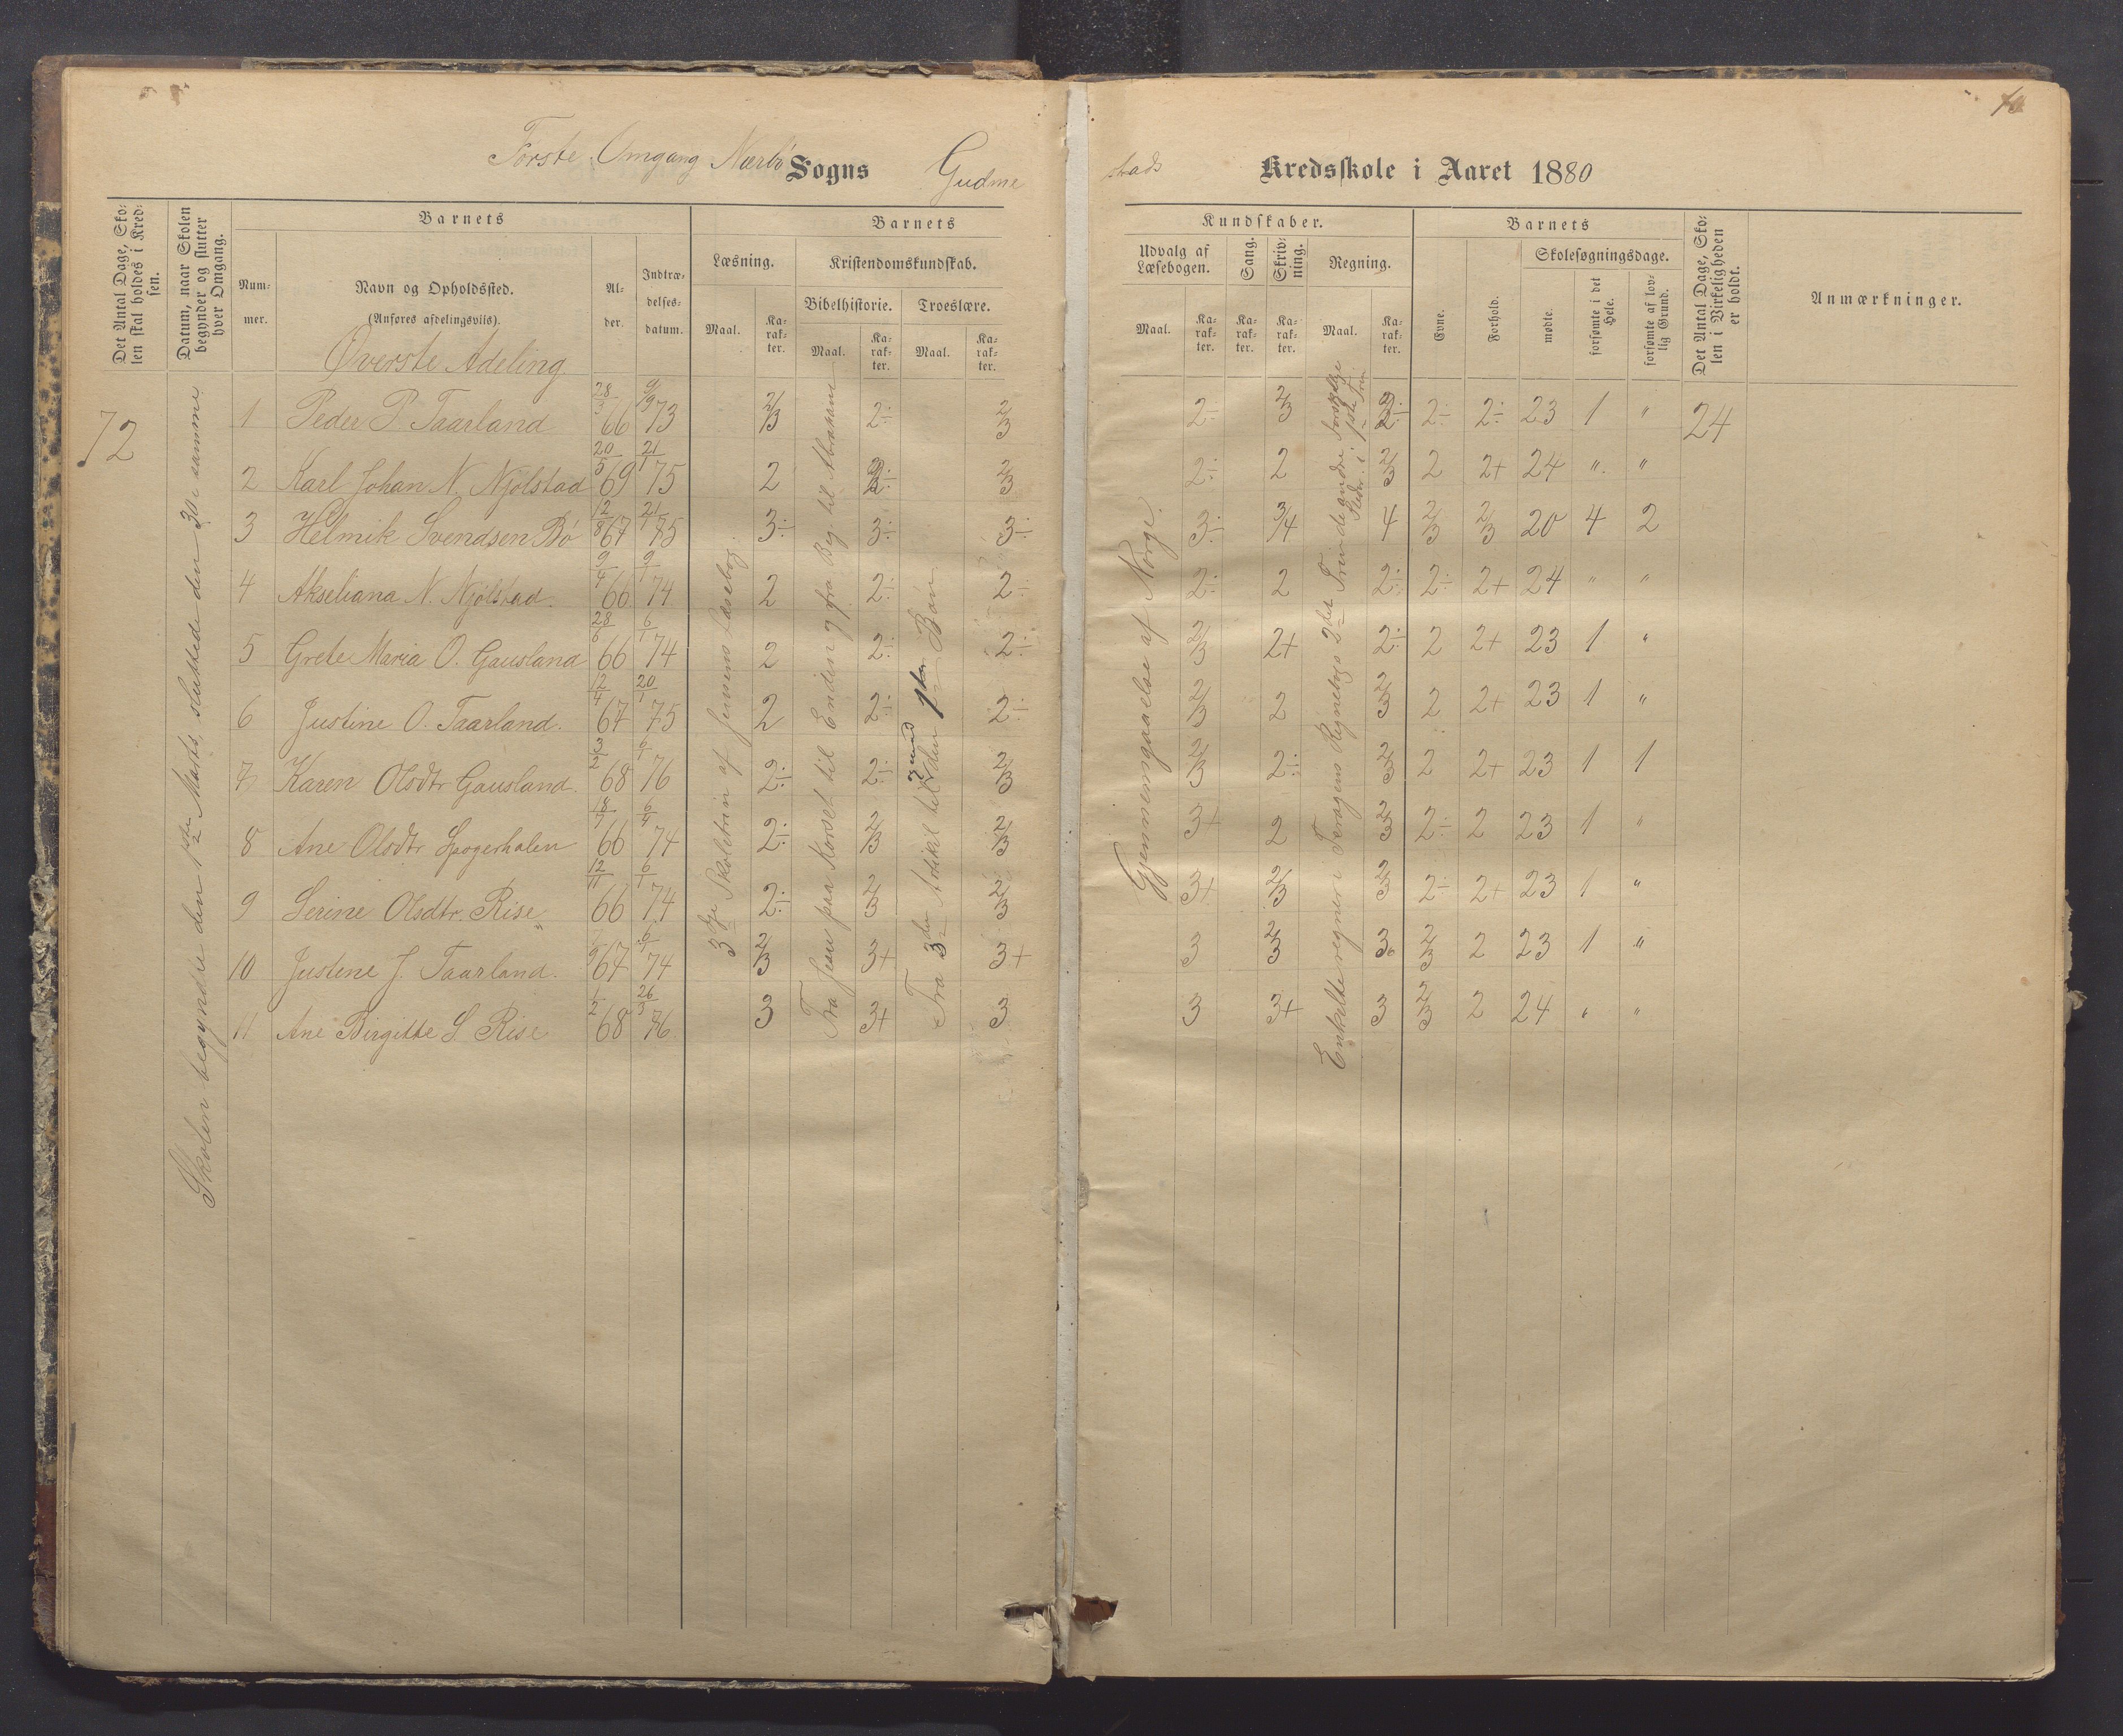 Første Omgang Nærbø Sogns Gudme
stads Kredsskole i Aaret 1880
Det Antal Dage, Skolen skal holdes i Kredsen.
Datum, naar Skolen begynder og slutter hver Omgang.
Barnets
Nummer.
Navn og Opholdssted.
(Anføres afdelingsviis).
Alder.
Indtrædelsesdatum.
Barnets
Læsning.
Maal.
Karakter.
Kristendomskundskab.
Bibelhistorie.
Maal.
Karakter.
Troeslære.
Maal.
Karakter.
Kundskaber.
Udvalg af Læsebogen.
Maal.
Karakter.
Sang.
Karakter.
Skrivning.
Karakter.
Regning.
Maal.
Karakter.
Barnets
Evne.
Forhold.
Skolesøgningsdage.
mødte.
forsømte i det Hele.
forsømte af lovlig Grund.
Det Antal Dage, Skolen i Virkeligheden er holdt.
Anmærkninger.
Øverste Adeling
72
Skolen begyndte den 1ste Marts, sluttede den 30te samme
3die Skoletrin af Jensens Læsebog.
Fra Jesu paa Korset til Enden og fra Beg. til Abraham
Fra 3die Artikel til den 1ste Bøn
Gjennemgaaelse af Norge.
24
1 Peder P. Taarland 66 73 2/3 2÷ 2/3 2÷ 2/3 2÷ 2÷ 23 1 "
2 Karl Johan N. Njølstad 20/5 69 21/1 75 2 2÷ 2/3 2÷ 2 2/3 2 2+ 24 " "
3 Helmik Svendsen Bø 12/8 67 21/1 75 3÷ 3÷ 3÷ 3÷ 3/4 4 2/3 2/3 20 4 2
4 Akseliana N. Njølstad. 66 9/1 74 2 2÷ 2÷ 2÷ 2 2÷ 2÷ 2+ 24 " "
5 Grete Maria O. Gausland 28/6 66 6/1 74 2 2÷ 2÷ 2/3 2+ 2÷ 2 2+ 23 1 "
6 Justine O. Taarland. 12/4 67 20/1 75 2 2÷ 2÷ 2/3 2 2/3 2 2+ 23 1 "
7 Karen Olsdtr Gausland. 3/2 68 6/1 76 2÷ 2÷ 2/3 2/3 2÷ 2/3 2 2+ 23 1 1
8 Ane Olsdtr 66 74 2÷ 2/3 2/3 3+ 2 2/3 2÷ 2 23 1 "
9 Serine Olsdtr. Rise 12/11 66 6/1 74 2÷ 2/3 2/3 3+ 2/3 2/3 2÷ 2+ 23 1 "
10 Justine J. Taarland. 67 74 2/3 3+ 3+ 3 2/3 3 2/3 2 23 1 "
11 Ane Birgitte S Rise 1/2 68 26/3 76 3 3+ 3 3 3+ 3 2/3 2 24 " "